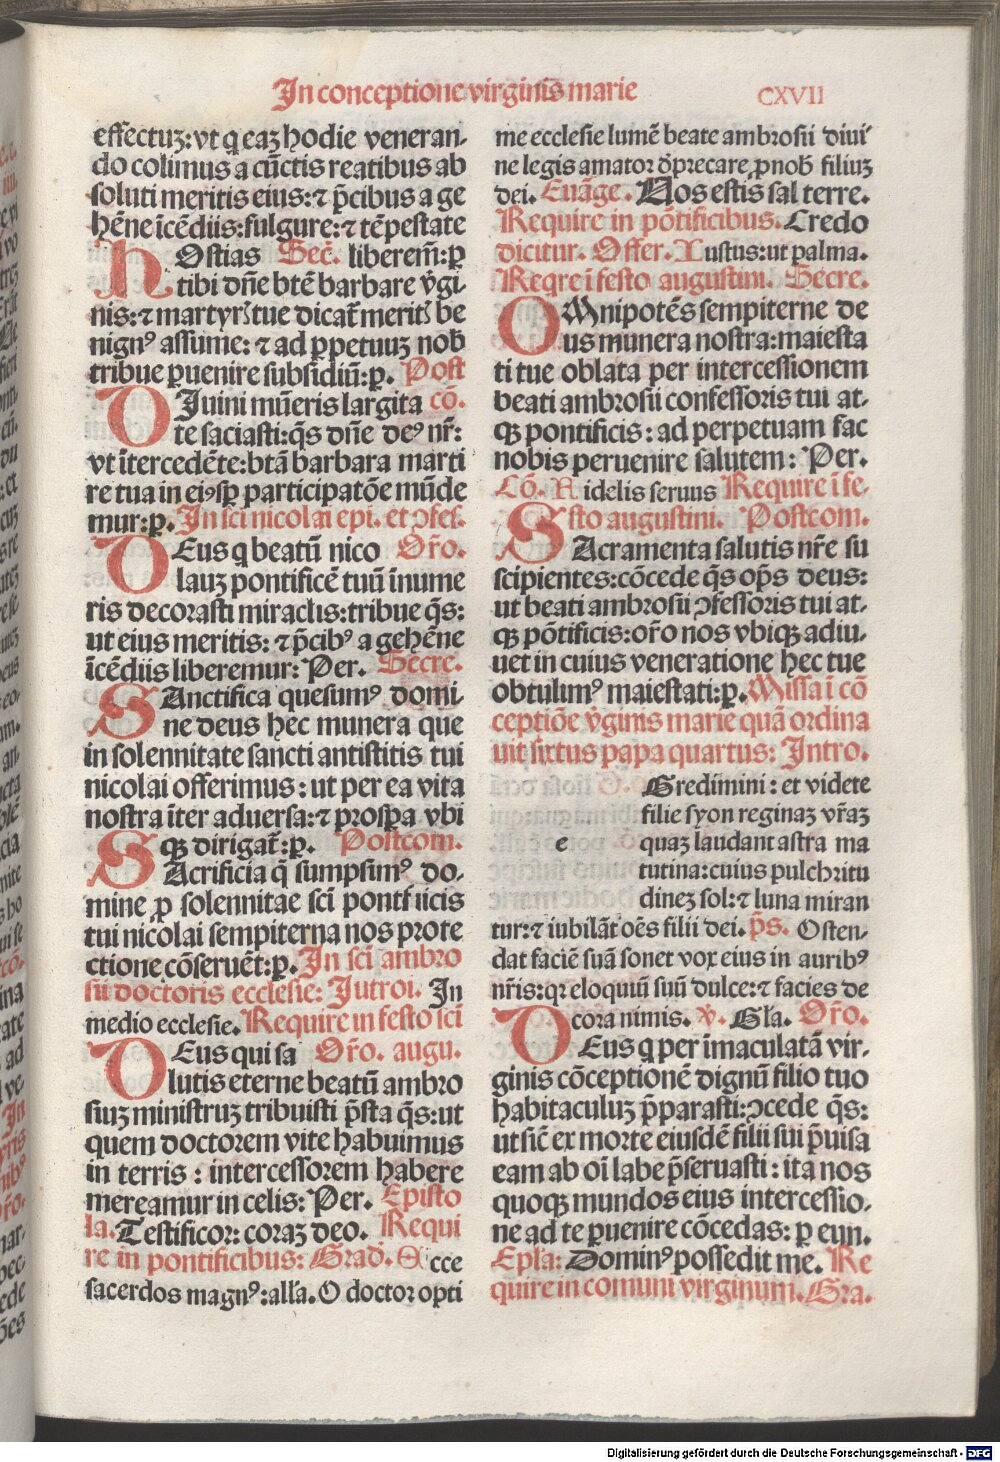 In conceptione virginis marie CXVII
effectuz: vt q̇ eaz hodie veneran-
do colimus a cūctis reatibus ab
soluti meritis eius: ⁊ p̄cibus a ge
hēne īcēdiis: fulgure: ⁊ tēpestate
hOstias Sec̄. liberem̄: ꝑ
tibi dn̄e btē barbare v̄gi-
nis: ⁊ martyrꝭ tue dicat̄ meritꝭ be
nignꝰ assume: ⁊ ad ꝑpetuuz nob̄
tribue ꝑuenire subsidiū: ꝑ. Post
DIuini mūeris largita cō.
te saciasti: q̄s dn̄e deꝰ nr̄:
vt ītercedēte: btā barbara marti
re tua in eiꝰsꝑ participatōe mūde
mur: ꝑ. In sci nicolai epi. et ꝯfes.
DEus q̇ beatū nico Or̄o.
lauz pontificē tuū īnume
ris decorasti miraclis: tribue q̄s:
ut eius meritis: ⁊ p̄cibꝰ a gehēne
īcēdiis liberemur: Per. Secre.
SAnctifica quesumꝰ domi-
ne deus hec munera que
in solennitate sancti antistitis tui
nicolai offerimus: ut per ea vita
nostra īter aduersa: ⁊ prosꝑa vbi
qꝫ dirigat̄: ꝑ. Postcom.
SAcrificia q̄ sumpsimꝰ do-
mine ꝓ solennitae sci pontificis
tui nicolai sempiterna nos prote
ctione cōseruēt: ꝑ. In sci ambro
sii doctoris ecclesie: Jutroi. In
medio ecclesie. Require in festo sci
DEus qui sa Or̄o. augu.
lutis eterne beatū ambro
siuz ministruz tribuisti p̄sta q̄s: ut
quem doctorem vite habuimus
in terris: intercessorem habere
mereamur in celis: Per. Episto
la. Testificor: coraz deo. Requi
re in pontificibus: Grad. Ecce
sacerdos magnꝰ: all̄a. O doctor opti
me ecclesie lumē beate ambrosii diui
ne legis amator d̄precare ꝓ nob̄ filiuz
dei. Euāge. Uos estis sal terre.
Require in pōtificibus. Credo
dicitur. Offer. Iustus: ut palma.
Reqre ī festo augustini. Secre.
OMnipotēs sempiterne de
us munera nostra: maiesta
ti tue oblata per intercessionem
beati ambrosii confessoris tui at-
qꝫ pontificis: ad perpetuam fac
nobis peruenire salutem: Per.
Cō. Fidelis seruus Require ī fe-
sto augustini. Postcom.
SAcramenta salutis nr̄e su
scipientes: cōcede q̄s op̄s deus:
ut beati ambrosii ꝯfessoris tui at-
qꝫ pōtificis: or̄o nos vbiqꝫ adiu-
uet in cuius veneratione hec tue
obtulimꝰ maiestati: ꝑ. Missa ī cō
ceptiōe v̄ginis marie quā ordina
uit sixtus papa quartus: Intro.
Gredīmini: et videte
filie syon reginaz vr̄az
e quaz laudant astra ma
tutina: cuius pulchritu
dinez sol: ⁊ luna miran
tur: ⁊ iubilāt oēs filii dei. p̄s. Osten-
dat faciē suā sonet vox eius in auribꝰ
nr̄is: qꝛ eloquiū suū dulce: ⁊ facies de
cora nimis. ℣. Gl̄a. Or̄o.
DEus q̇ per īmaculatā vir-
ginis cōceptionē dignū filio tuo
habitaculuz p̄parasti: ꝯcede q̄s:
ut sic̄ ex morte eiusdē filii sui p̄uisa
eam ab oī labe p̄seruasti: ita nos
quoqꝫ mundos eius intercessio-
ne ad te ꝑuenire cōcedas: ꝑ eun.
Epl̄a: Dominꝰ possedit me. Re
quire in comuni virginum. Gra.
Digitalisierung gefördert durch die Deutsche Forschungsgemeinschaft - DFG